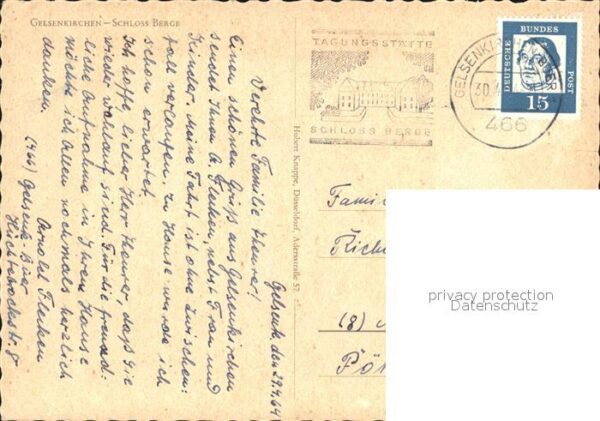 GELSENKIRCHEN – SCHLOSS BERGE
Gelsenk. den 29.4.64
Verehrte Familie Heurer!
Einen schönen Gruß aus Gelsenkirchen
sendet Ihnen A. Fleken, nebst Frau und
Kinder. Meine Fahrt ist ohne zwischen:
fall verlaufen. Zu Hause wurde ich
schon erwartet.
Ich hoffe, lieber Herr Heurer, daß Sie
wieder wohlauf sind. Für die freund:
liche Aufnahme in Ihrem Hause
möchte ich Allen nochmals herzlich
danken.
Arnold Fleken
(466) Gelsenk-Buer
Hubert Knappe, Düsseldorf, Adersstraße 57
TAGUNGSSTÄTTE
SCHLOSS BERGE
GELSENKIRCHEN-BUER
30.4
466
DEUTSCHE
BUNDES
POST
15
Fami
(8)
privacy protection
Datenschutz